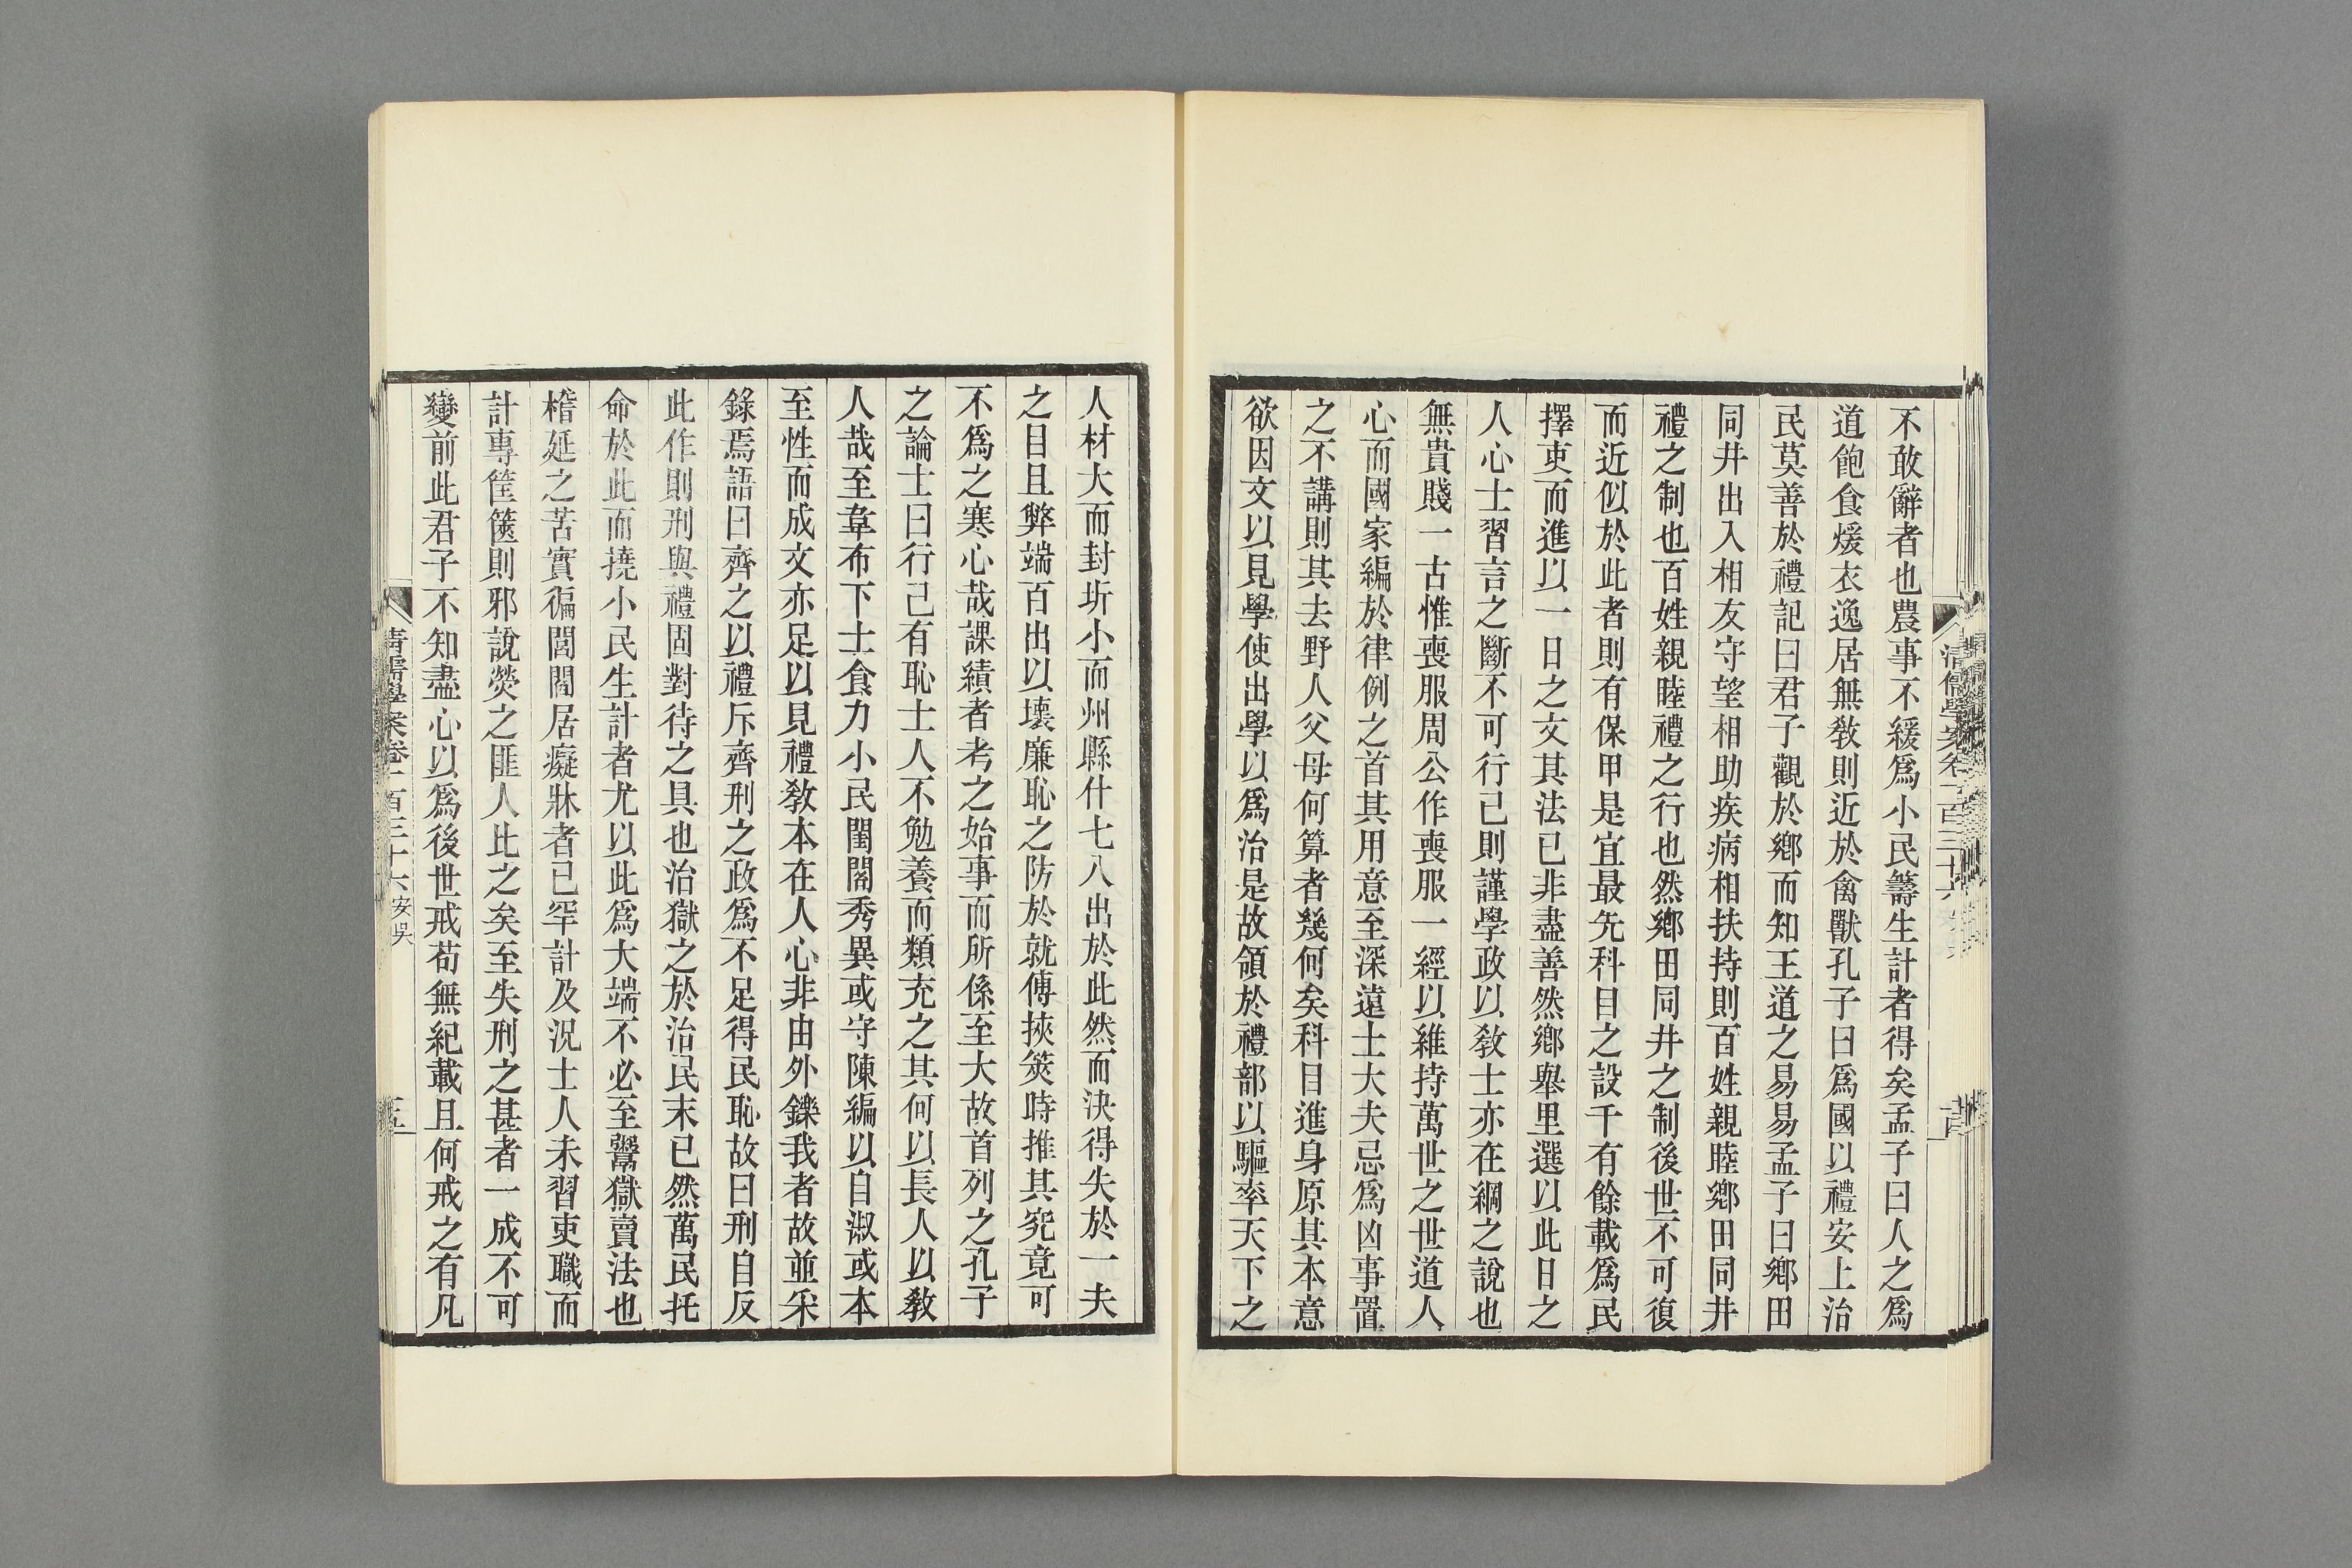 不敢辭者也農事不緩爲小民籌生計者得矣孟子曰人之爲
道飽食煖衣逸居無敎則近於禽獸孔子曰爲國以禮安上治
民莫善於禮記曰君子觀於鄉而知王道之易易孟子曰鄉田
同井出入相友守望相助疾病相扶持則百姓親睦鄉田同井
禮之制也百姓親睦禮之行也然鄉田同井之制後世不可復
而近似於此者則有保甲是宜最先科目之設千有餘載爲民
擇吏而進以一日之文其法已非盡善然鄉舉里選以此日之
人心士習言之斷不可行己則謹學政以敎士亦在綱之說也
無貴賤一古惟喪服周公作喪服一經以維持萬世之世道人
心而國家編於律例之首其用意至深遠士大夫忌爲凶事置
之不講則其去野人父母何算者幾何矣科目進身原其本意
欲因文以見學使出學以爲治是故領於禮部以驅率天下之
人材大而封圻小而州縣什七八出於此然而決得失於一夫
之目且弊端百出以壞廉恥之防於就傅挾筴時推其究竟可
不爲之寒心哉課績者考之始事而所係至大故首列之孔子
之論士曰行己有恥士人不勉養而類充之其何以長人以敎
人哉至韋布下士食力小民閨閤秀異或守陳編以自淑或本
至性而成文亦足以見禮敎本在人心非由外鑠我者故並采
錄焉語曰齊之以禮斥齊刑之政爲不足得民恥故曰刑自反
此作則刑與禮固對待之具也治獄之於治民末已然萬民托
命於此而撓小民生計者尤以此爲大端不必至鬻獄賣法也
稽延之苦實徧閭閻居癡牀者已罕計及況士人未習吏職而
計專筐篋則邪說熒之匪人此之矣至失刑之甚者一成不可
變前此君子不知盡心以爲後世戒苟無紀載且何戒之有凡
清儒學案卷一百三十六 安吳